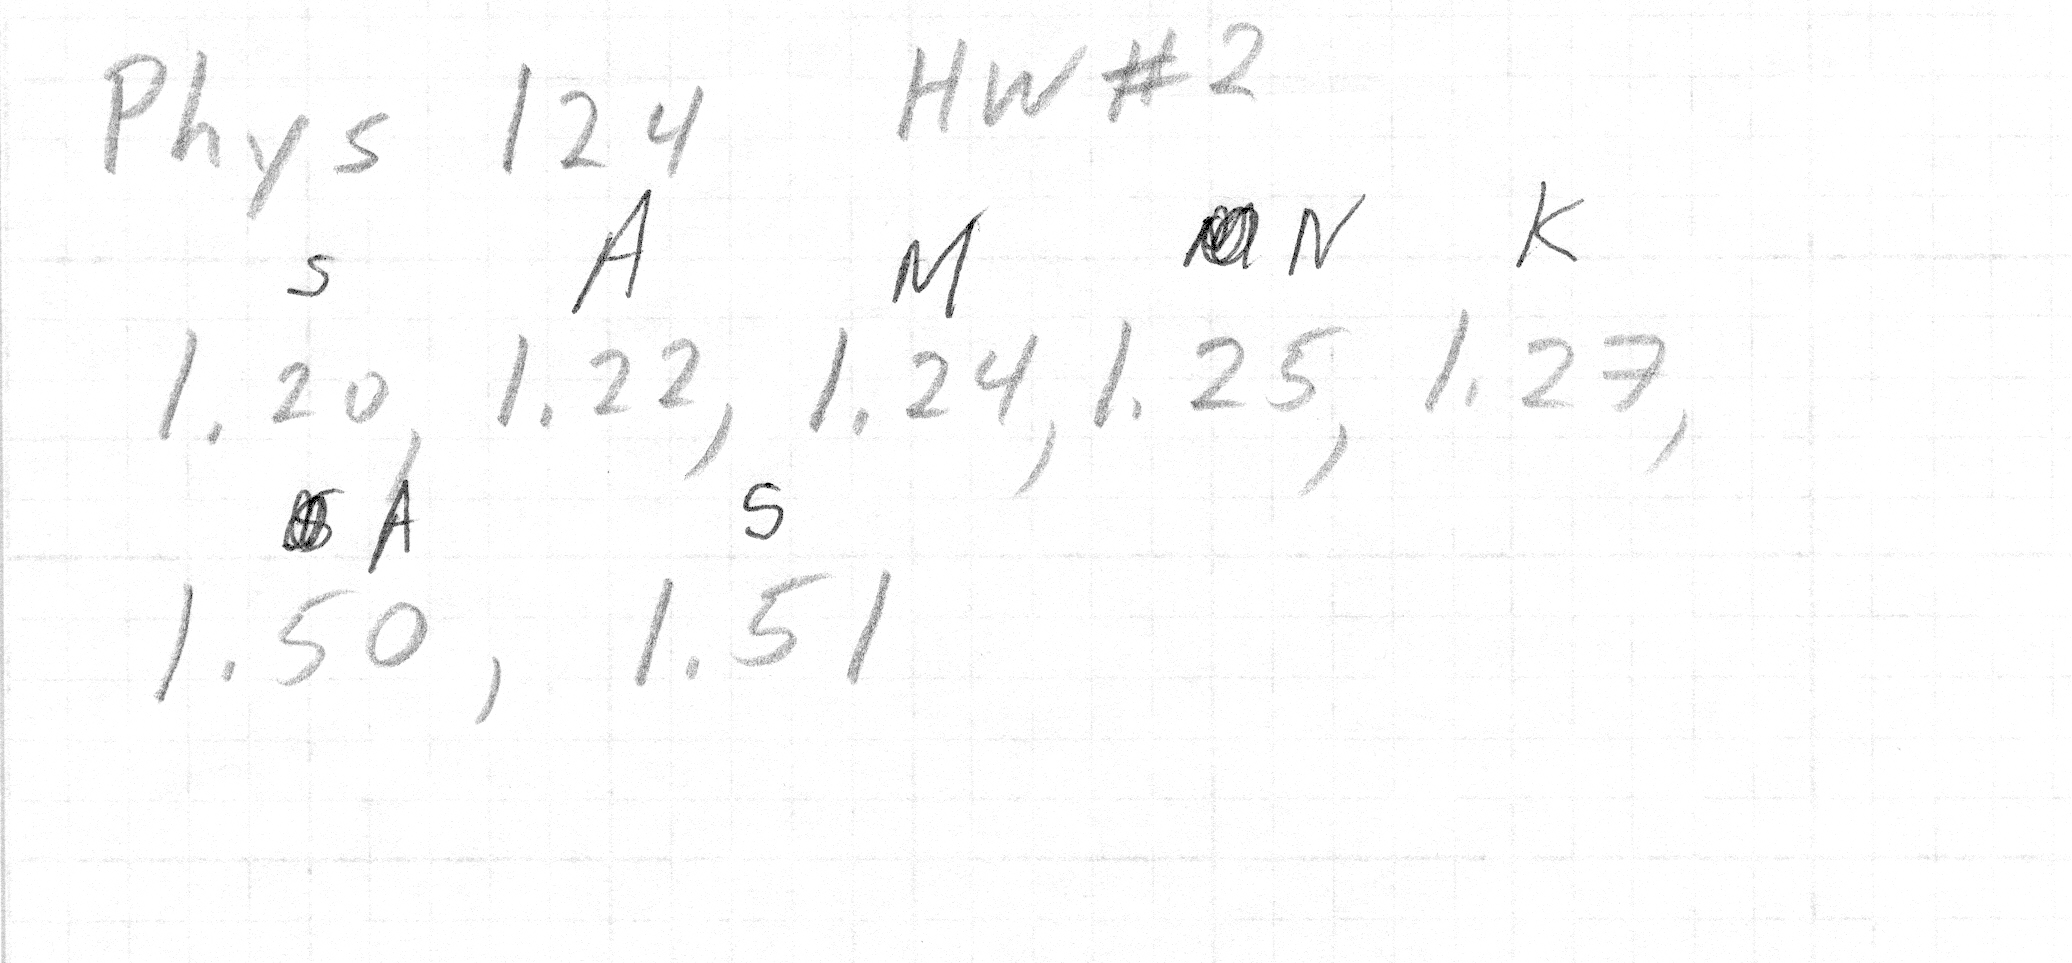 Phys 124 HW #2
S A M N K
1.20, 1.22, 1.24, 1.25, 1.27,
A S
1.50, 1.51